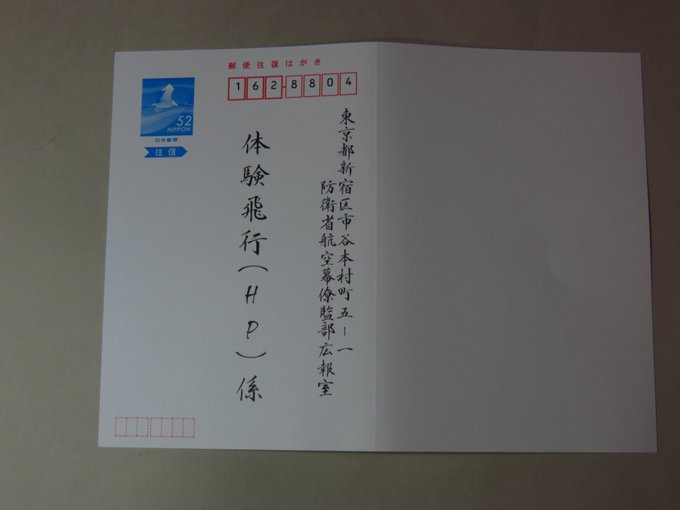 郵便往復はがき
162-8804
東京都新宿区市谷本村町五ー一
防衛省航空幕僚監部広報室
体験飛行(HP)係
52
NIPPON
日本郵便
往信